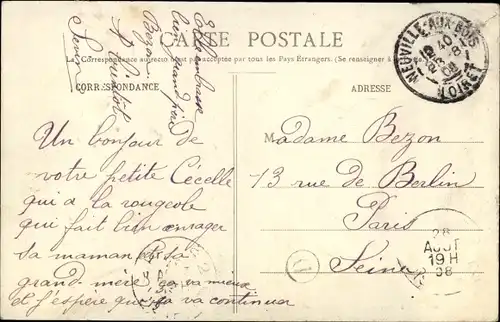 CARTE POSTALE
La Correspondance au recto n'est pas acceptée par tous les Pays Étrangers. (Se renseigner à la Poste)
CORRESPONDANCE
ADRESSE
Un bonjour de
votre petite Cécelle
qui a la rougeole
qui fait bien enrager
sa maman et sa
grand-mère ça va mieux
et j'espère que ça va continuer
Elle embrasse
bien
Bezon
Madame Bezon
13 rue de Berlin
Paris
Seine
NEUVILLE-AUX-BOIS
LOIRET
28
AOUT
19 H
08